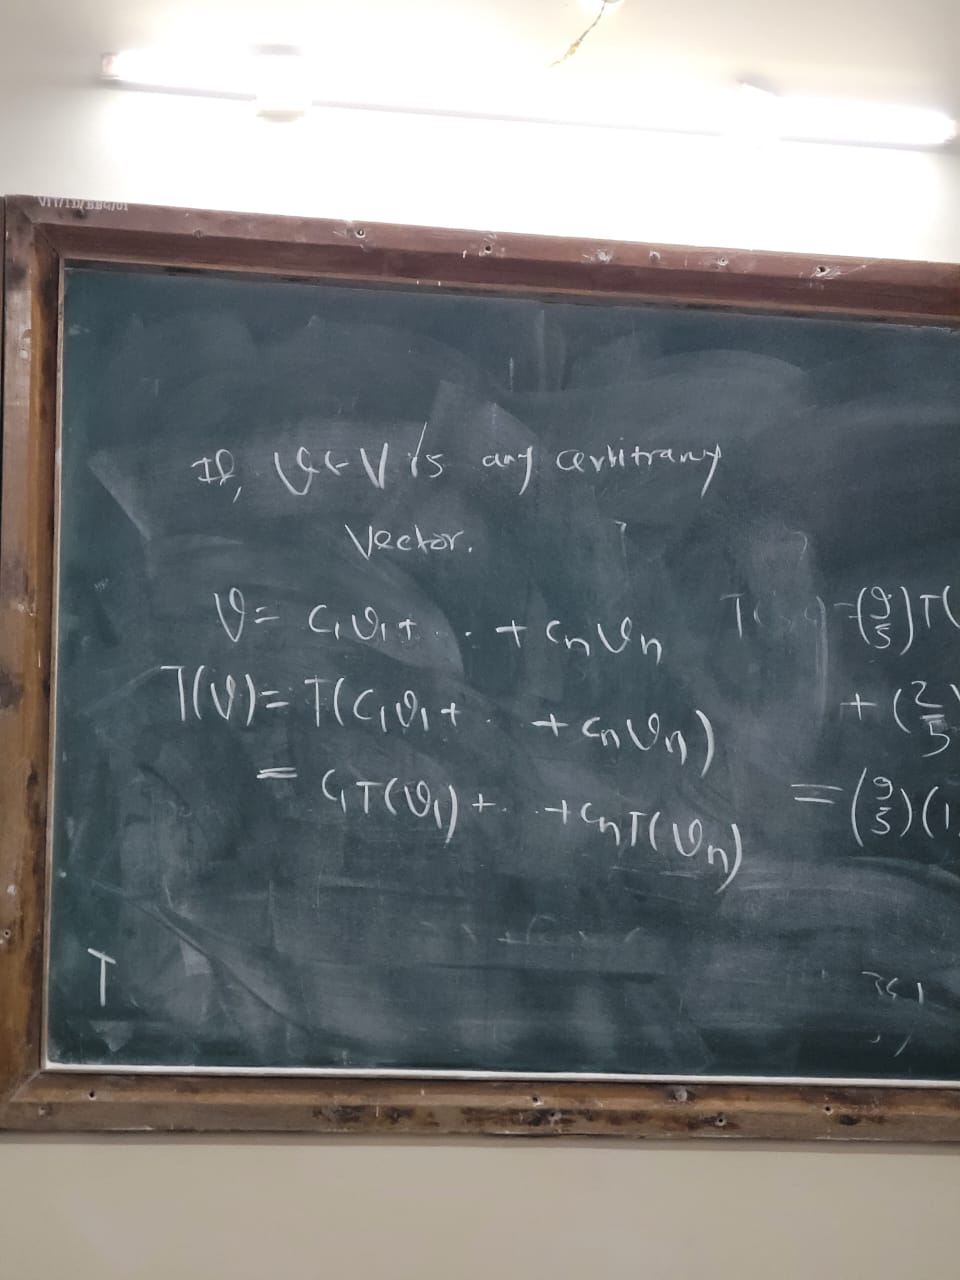 VIT/ID/BB4/01
If, v ∈ V is any arbitrary
vector.
v = c₁v₁ + . . + cₙvₙ
T(v) = T(c₁v₁ + . . + cₙvₙ)
= c₁T(v₁) + . . + cₙT(vₙ)
T
= (9/5) T(
+ (2/5)
= (9/5) (1,